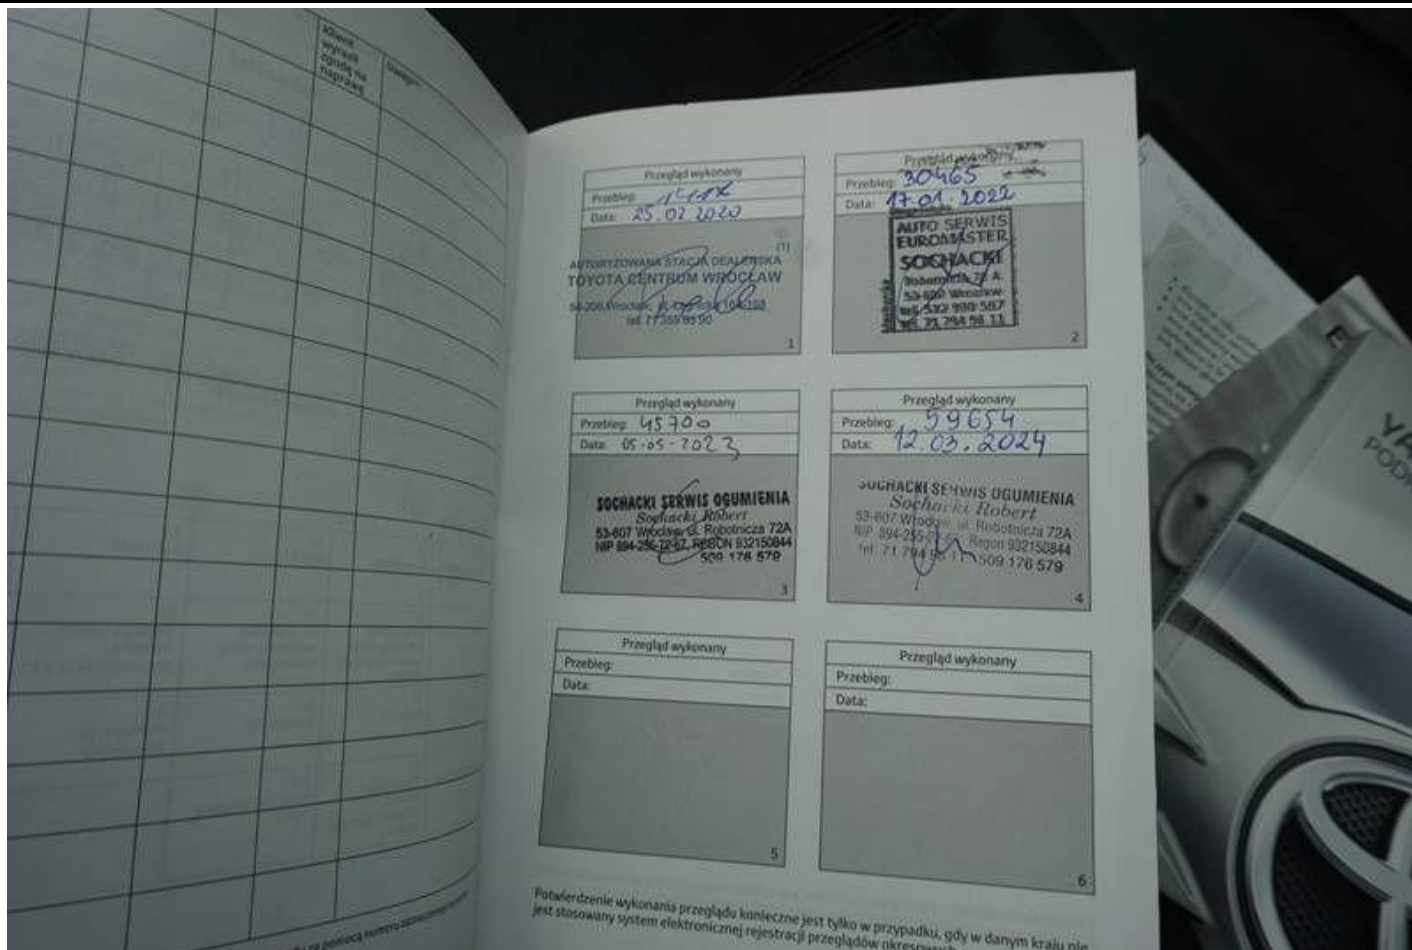 Klient
wyraził
zgodę na
naprawę
Uwagi
Przegląd wykonany
Przebieg:
Data: 25.02 2020
(1)
AUTORYZOWANA STACJA DEALERSKA
TOYOTA CENTRUM WROCŁAW
1
Przegląd wykonany
Przebieg: 30465
Data: 17.01.2022
AUTO SERWIS
EUROMASTER
SOCHACKI
Robotnicza 72 A
tel. 71 794 98 11
2
Przegląd wykonany
Przebieg: 45700
Data: 05-05-2023
SOCHACKI SERWIS OGUMIENIA
Sochacki Robert
53-607 Wrocław ul. Robotnicza 72A
REGON 932150844
509 176 579
3
Przegląd wykonany
Przebieg: 59654
Data: 12.03.2024
SOCHACKI SERWIS OGUMIENIA
Sochacki Robert
53-607 Wrocław ul. Robotnicza 72A
Regon 932150844
509 176 579
4
Przegląd wykonany
Przebieg:
Data:
5
Przegląd wykonany
Przebieg:
Data:
6
Potwierdzenie wykonania przeglądu konieczne jest tylko w przypadku, gdy w danym kraju nie
jest stosowany system elektronicznej rejestracji przeglądów
za pomocą numeru